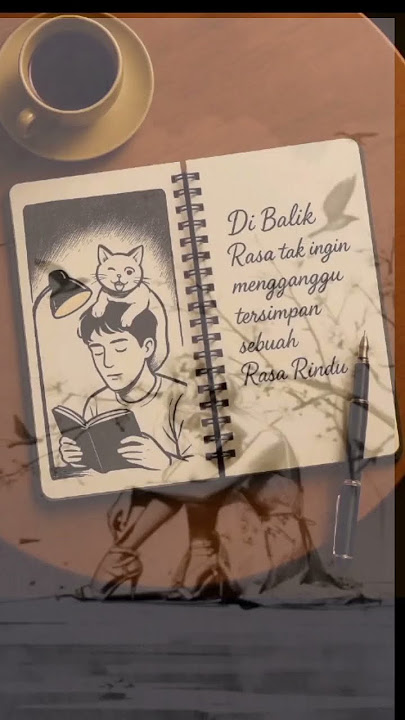 Di Balik
Rasa tak ingin
mengganggu
tersimpan
sebuah
Rasa Rindu